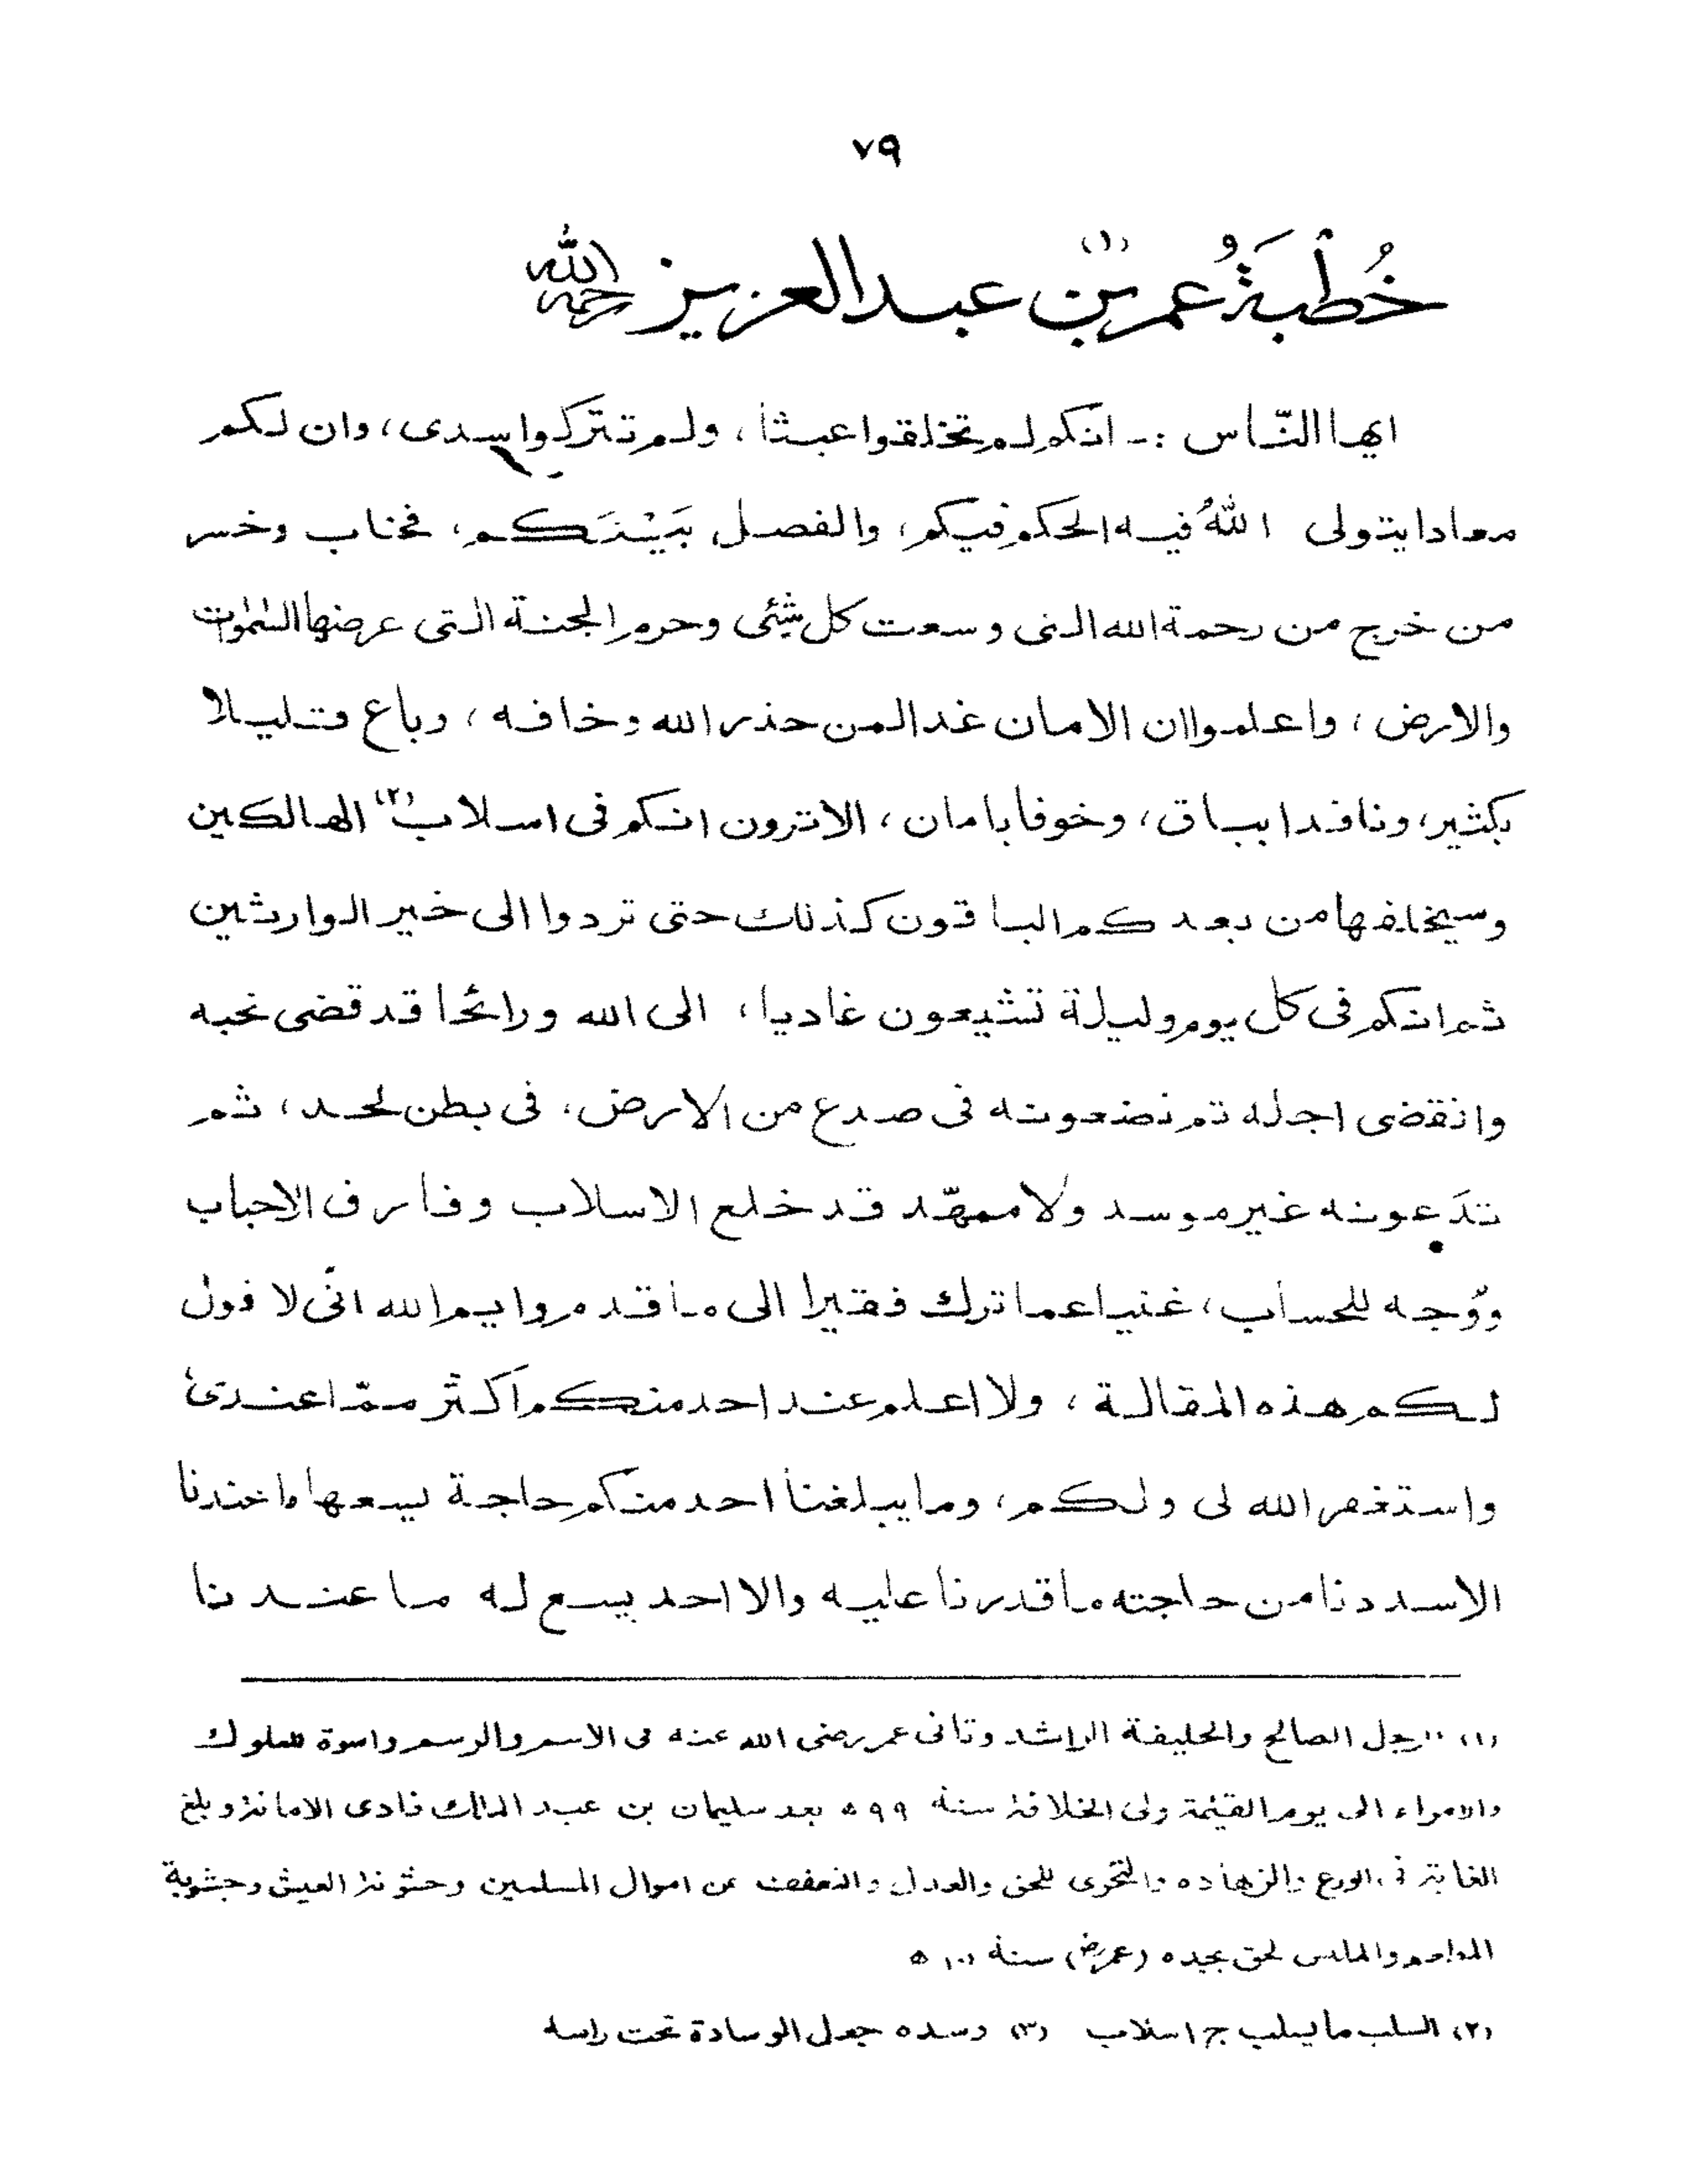 ٧٩
خُطْبَةُ عمر بن (١) عبد العزيز رحمه الله
ايها النّاس :ـ انكم لم تخلقوا عبثا، ولم تتركوا سدى، وان لكم
معادا يتولى اللهُ فيه الحكم فيكم، والفصل بَيْنَكم، فخاب وخسر
من خرج من رحمة الله التى وسعت كل شئى وحرم الجنة التى عرضها السمٰوٰت
والارض، واعلموا ان الامان غدا لمن حذر الله وخافه، وباع قليلا
بكثير، ونافدا بباق، وخوفا بامان، الا ترون انكم فى اسلاب (٢) الهالكين
وسيخلفها من بعدكم الباقون كذلك حتى تردوا الى خير الوارثين
ثم انكم فى كل يوم وليلة تشيعون غاديا، الى الله ورائحا قد قضى نحبه
وانقضى اجله ثم نضعونه فى صدع من الارض، فى بطن لحد، ثم
تدَعونه غير موسد ولا ممهّد قد خلع الاسلاب وفارق الاحباب
ووُجه للحساب، غنيا عما ترك فقيرا الى ما قدم وايم الله انّى لا قول
لكم هذه المقالة، ولا اعلم عند احد منكم اكثر ممّا عندى
واستغفر الله لى ولكم، وما يبلغنا احد منكم حاجة يسعها ما عندنا
الا سددنا من حاجته ما قدرنا عليه والا احد يسع له ما عندنا
(١) الرجل الصالح والخليفة الراشد وثانى عمر رضى الله عنه فى الاسم والرسم واسوة للملوك
والامراء الى يوم القيٰمة ولى الخلافة سنة ٩٩ ه بعد سليمان بن عبد الملك فادى الامانة وبلغ
الغاية فى الورع والزهاده والتحرى للحق والعدل والتعفف عن اموال المسلمين وخشونة العيش وجشوبة
والملبس لحق بجده (عمرؓ) سنة ه
(٢) السلب ما يسلب ج اسلاب (٣) وسده جعل الوسادة تحت راسه